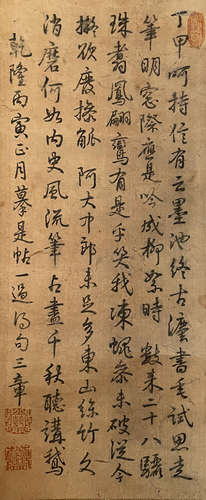 丁甲呵持信有之墨池終古灋書垂試思走
筆明窗際應是吟成柳絮時 數來二十八驪
珠翥鳳翩鸞有是乎笑我凍蠅參未破從今
擬欲廢操觚 阿大中郎未足多東山絲竹久
消磨何如內史風流筆占盡千秋聽講鵝
乾隆丙寅正月摹是帖一過得句三章